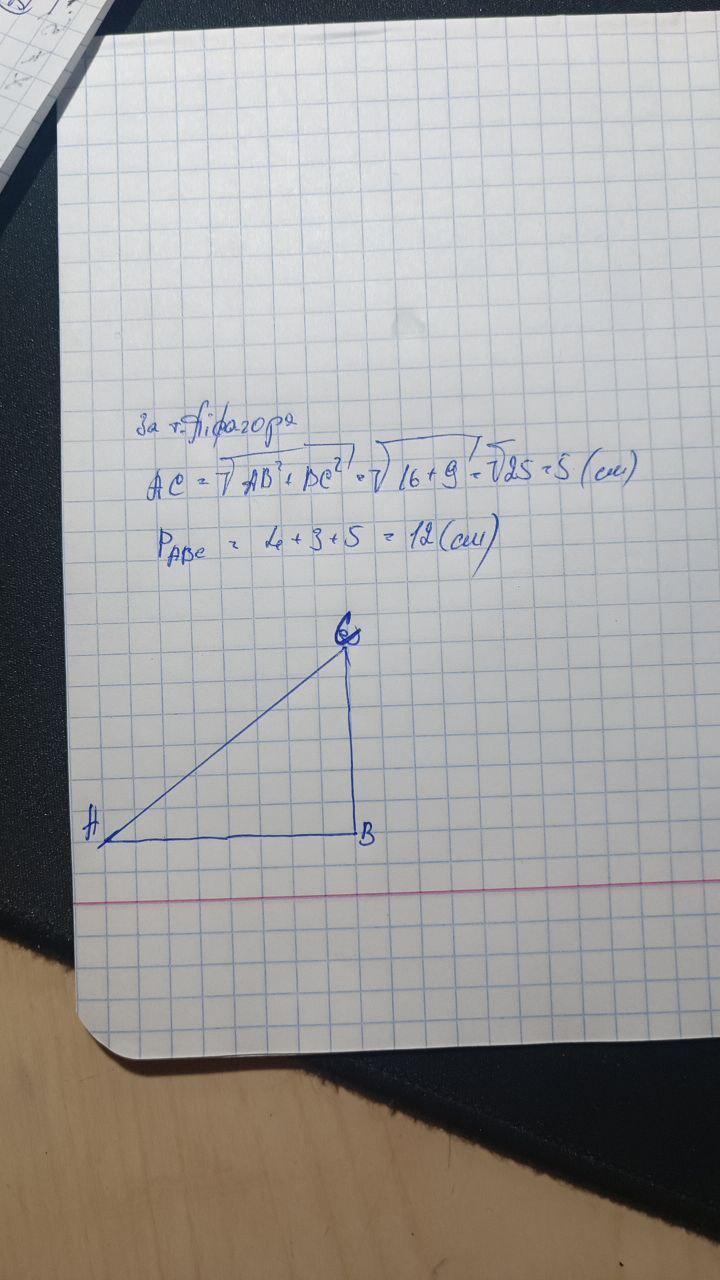 За т. Піфагора
AC = √AB² + BC² = √16 + 9 = √25 = 5 (см)
P ABC = 4 + 3 + 5 = 12 (см)
C
A
B